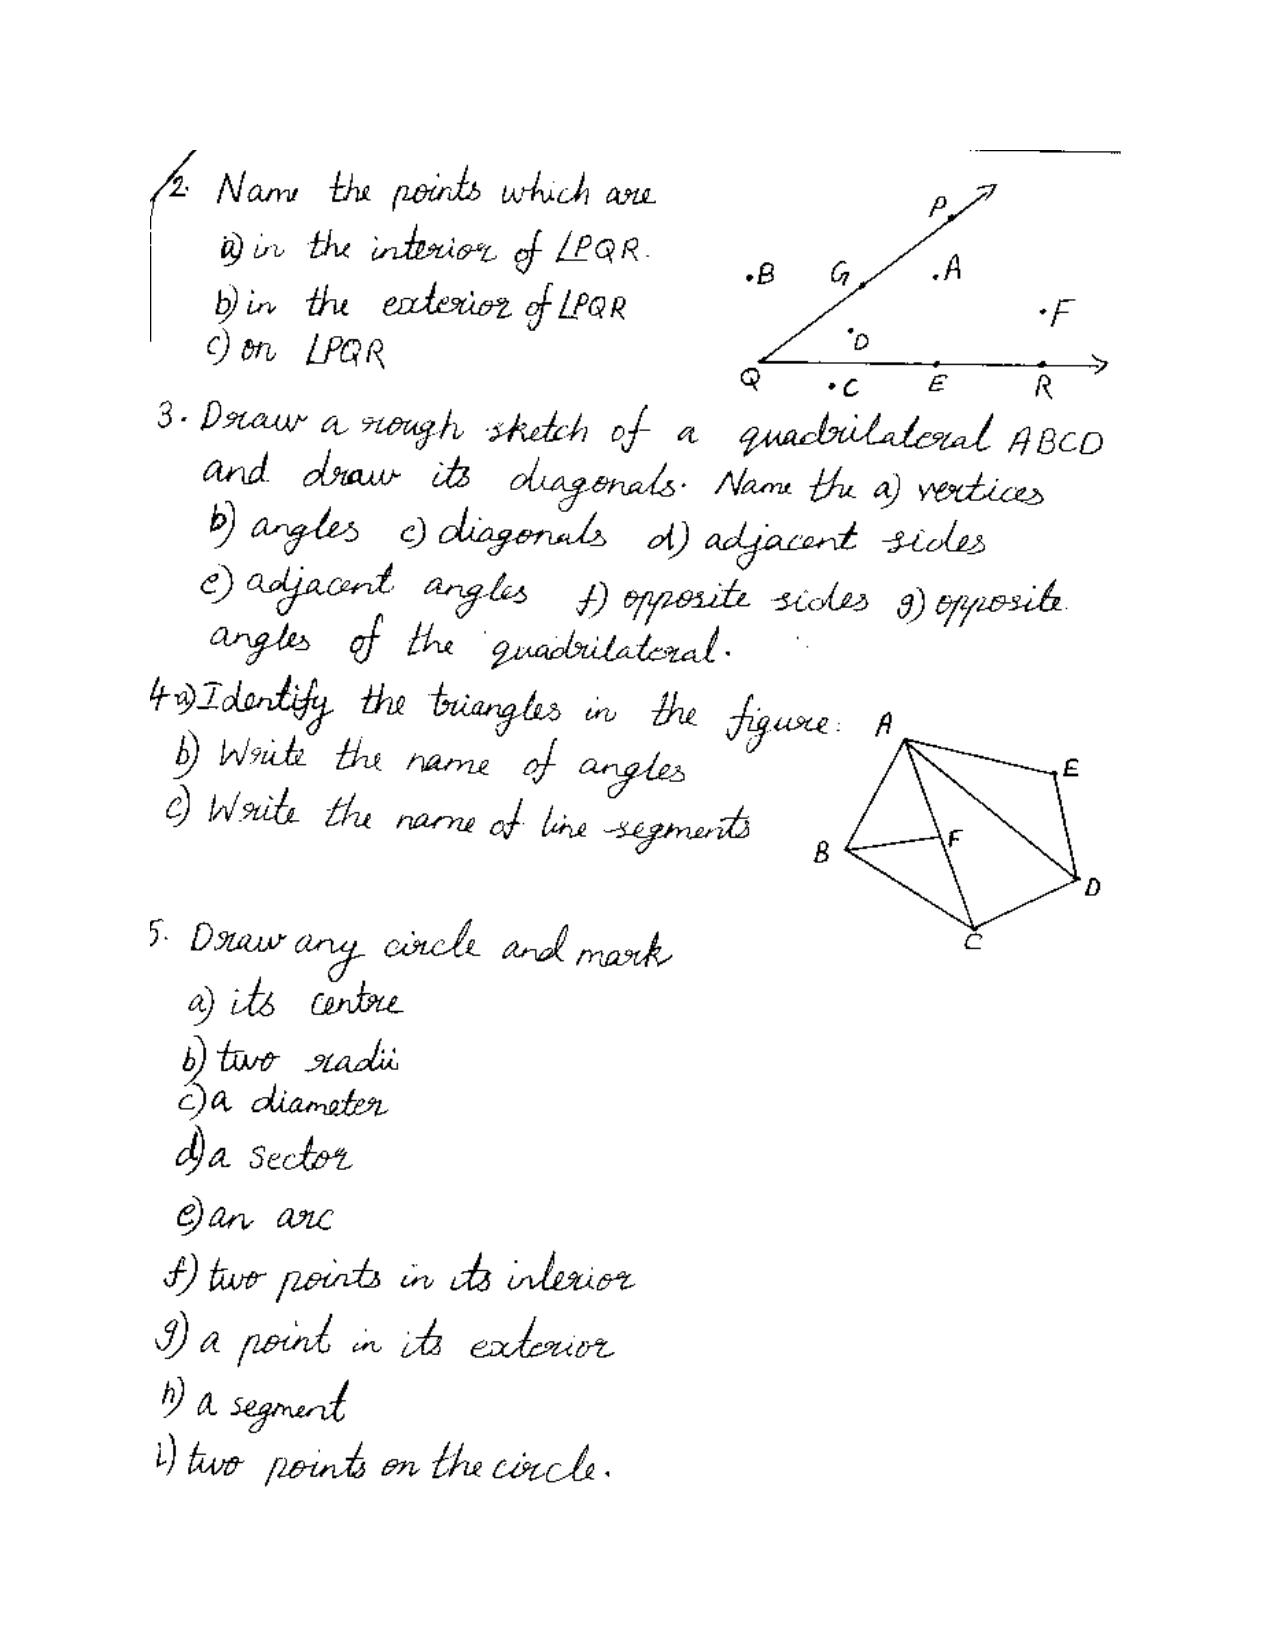 2. Name the points which are
a) in the interior of ∠PQR.
b) in the exterior of ∠PQR
c) on ∠PQR
P
B
G
A
F
D
Q
C
E
R
3. Draw a rough sketch of a quadrilateral ABCD
and draw its diagonals. Name the a) vertices
b) angles c) diagonals d) adjacent sides
e) adjacent angles f) opposite sides g) opposite
angles of the quadrilateral.
4 a) Identify the triangles in the figure:
b) Write the name of angles
c) Write the name of line segments
A
E
F
B
D
C
5. Draw any circle and mark
a) its centre
b) two radii
c) a diameter
d) a sector
e) an arc
f) two points in its interior
g) a point in its exterior
h) a segment
i) two points on the circle.